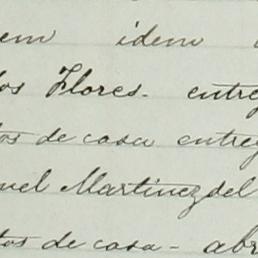 em idem
los Flores. entreg
tos de casa entreg
uel Martinez del
tos de casa - abr